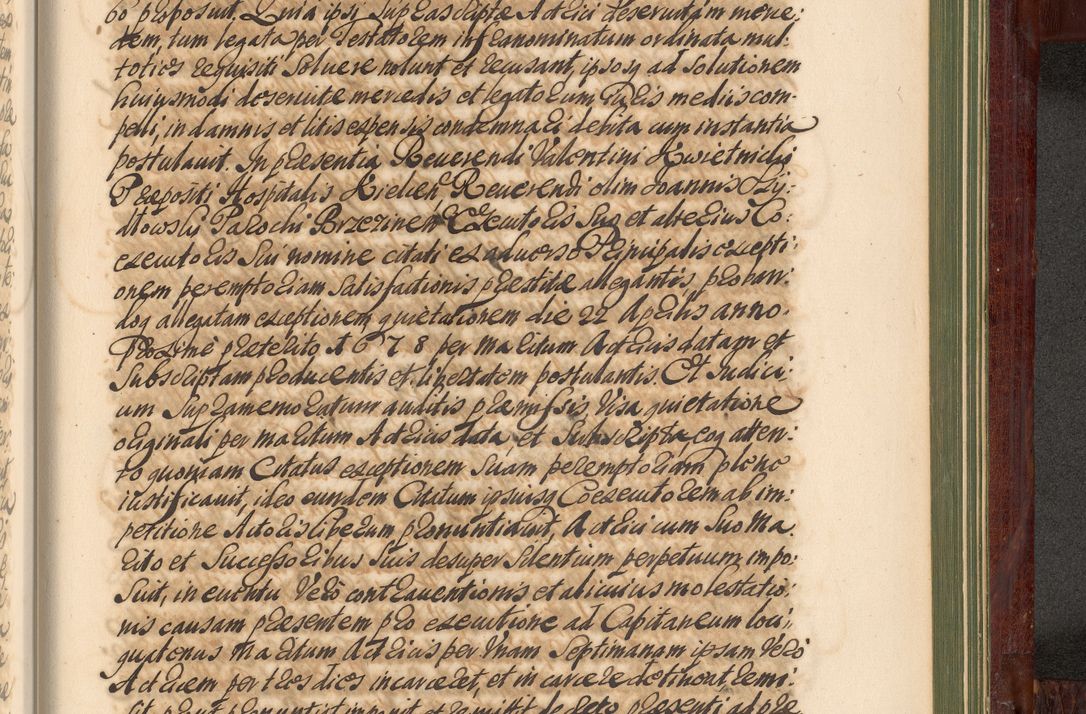 bo proposuit. Quia ipsi supra scriptæ Actrici deservitam merce:
dem, tum legata per Testatorem infranominatum ordinata mul:
toties requisiti solvere nolunt et recusant, ipsosq ad solutionem
huiusmodi deservitæ mercedis et legatorum Juris mediis com:
pelli, in damnis et litis expensis condemnari debita cum instantia
postulavit. In præsentia Reverendi Valentini Kwietnicki
Præpositi Hospitalis Kielcen Reverendi olim Joannis
Parochi Brzezinen Executoris Suo et alterius Co:
executoris sui nomine citati ex adverso Principalis excepti:
onem peremptoriam satisfactionis præstitæ allegantis, proban:
doq allegatam exceptionem quietationem die 22 Aprilis anno
Proximè præterito 1678 per maritum Actricis datam et
Subscriptam producentis et libertatem postulantis. Et Judici:
um supramemoratum auditis præmissis, visa quietatione
originali per maritum Actricis data, et Subscripta, eoq atten:
to quoniam Citatus exceptionem suam peremptoriam plene
iustificavit, ideo eundem Citatum ipsiusq Coexecutorem ab im:
petitione Actoris liberum pronuntiavit, Actrici cum suo Ma:
rito et Successoribus suis desuper silentium perpetuum impo:
suit, in eventu Verò contraventionis et alicuius molestatio:
nis causam præsentem pro executione ad Capitaneum loci,
quatenus maritum Actricis per Unam Septimanam ipsam Verò
Actricem per tres dies incarceret, et in carcere detineat, remi:
sit prout pronuntiat imponit et remittit decreto præsenti ad præ